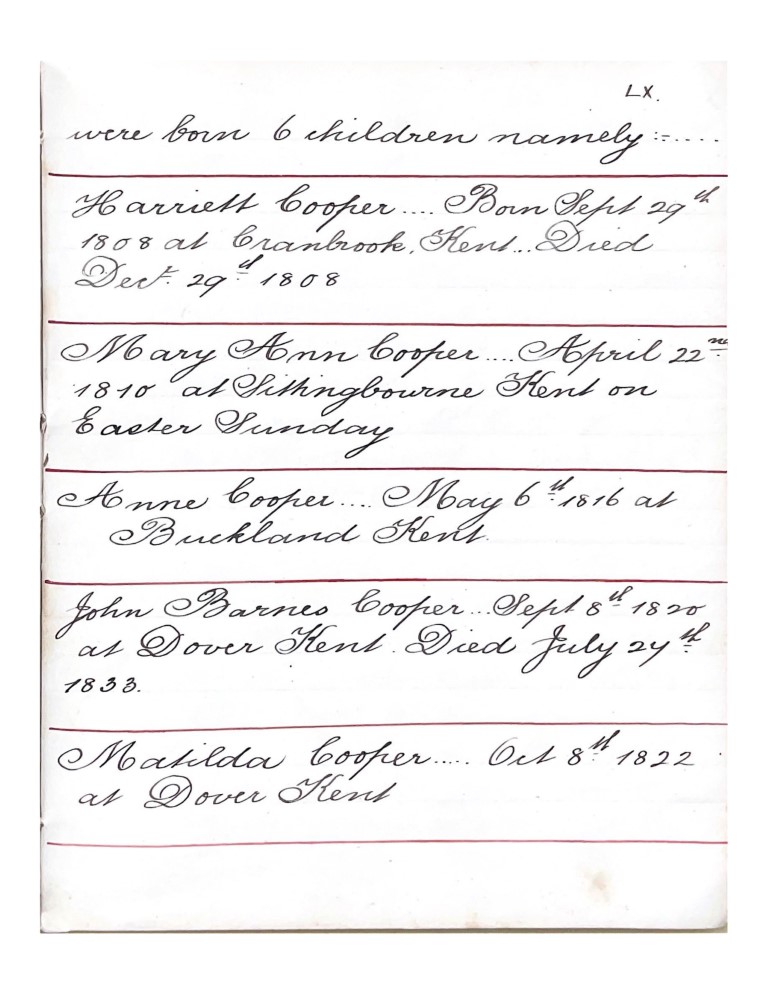 LX.
were born 6 children namely :-....
Harriett Cooper .... Born Sept 29th
1808 at Cranbrook, Kent... Died
Dect. 29th 1808
Mary Ann Cooper .... April 22nd
1810 at Sittingbourne Kent on
Easter Sunday
Anne Cooper .... May 6th 1816 at
Buckland Kent.
John Barnes Cooper ... Sept 8th 1820
at Dover Kent. Died July 27th
1833.
Matilda Cooper ..... Oct 8th 1822
at Dover Kent